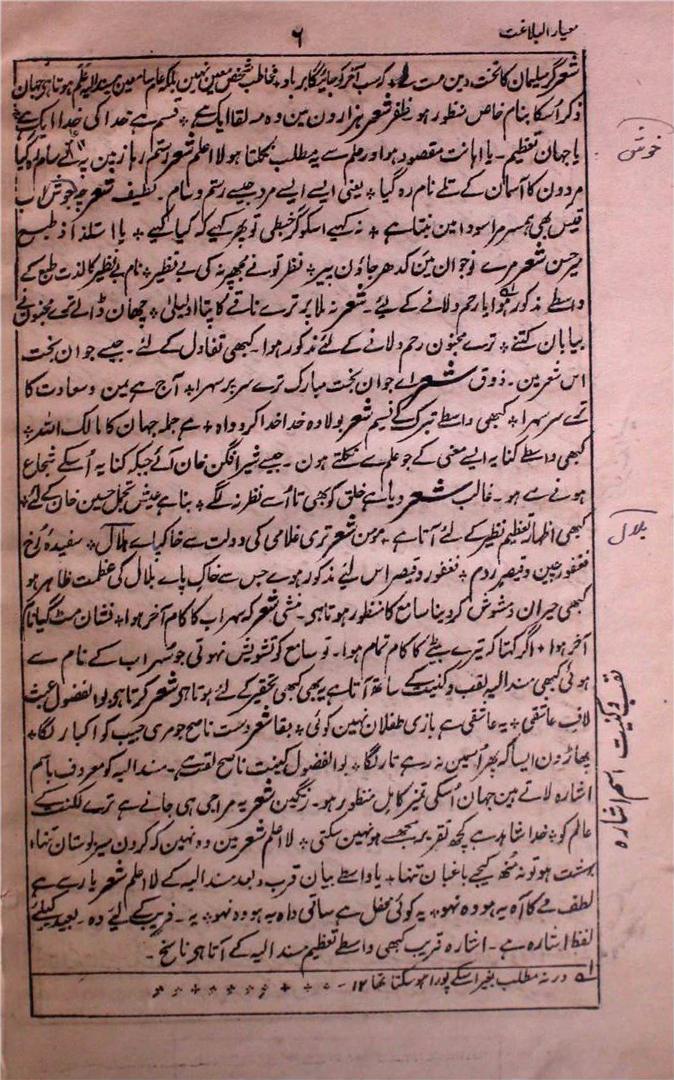 معیار البلاغت
۶
شعر گر سلیمان کا تخت دین مت لے ٭ کہ سب آخر کو جائیگا برباد ٭ مخاطب شخص معین نہین بلکہ عام سامعین ہین مسند الیہ علم ہوتا ہی جہان
ذکر اُسکا بنام خاص منظور ہو۔ ظفر شعر ہزارون مین وہ مہ لقا ایک ہے ٭ قسم ہے خدا کی خدا ایک ہے ٭
یا جہان تعظیم۔ یا اہانت مقصود ہو اور علم سے یہ مطلب نکلتا ہو لا اعلم شعر رستم رہا زمین پہ نے سام رہ گیا
مردون کا آسمان کے تلے نام رہ گیا ٭ یعنی ایسے ایسے مرد جیسے رستم و سام۔ لطیف شعر پہ جوش اب
قیس بھی ہمسر مرا سودا مین بنتا ہے ٭ نہ کہیے اسکو گر خبطی تو پھر کہیے کہ کیا کہیے ٭ یا استلذاذ طبع
میر حسن شعر مرے نوجوان مین کدھر جاؤن پیر ٭ نظر تونے مجھپر نہ کی بے نظیر ٭ نام بے نظیر کا لذت طبع کے
واسطے مذکور ہوا یا رحم دلانے کے لیے۔ شعر نہ ملا پر ترے ناقے کا پتا او لیلیٰ ٭ چھان ڈالے ترے مجنون نے
بیابان کتنے ٭ ترے مجنون رحم دلانے کے لئے مذکور ہوا۔ کبھی تفاول کے لئے۔ جیسے جوان بخت
اس شعر مین۔ ذوق شعر اے جوان بخت مبارک ترے سر پر سہرا ٭ آج ہے یمن و سعادت کا
ترے سر سہرا ٭ کبھی واسطے تبرک کے نسیم شعر بولا وہ خدا خدا کر و واہ ٭ ہے جملہ جہان کا مالک اللہ ٭
کبھی واسطے کنایہ ایسے معنی کے جو علم سے نکلتے ہون۔ جیسے شیر افگن خان آئے جبکہ کنایہ اُسکے شجاع
ہونے سے ہو۔ غالب شعر دیا ہے خلق کو بھی تا اُسے نظر نہ لگے ٭ بنا ہے عیش تجمل حسین خان کے لئے ٭
کبھی اظہار تعظیم نظیر کے لئے آتا ہے۔ مومن شعر تری غلامی کی دولت سے خاکپاے بلال ٭ سفیدہ رُخ
فغفور چین و قیصر روم ٭ فغفور و قیصر اس لئے مذکور ہوے جس سے خاک پاے بلال کی عظمت ظاہر ہو
کبھی حیران و مشوش کر دینا سامع کا منظور ہوتا ہی۔ منشی شعر کہ سہراب کا کام آخر ہوا ٭ نشان مٹ گیا نام
آخر ہوا ٭ اگر کہتا کہ تیرے بیٹے کا کام تمام ہوا۔ تو سامع کو تشویش نہوتی جو سہراب کے نام سے
ہوئی کبھی مسند الیہ لقب و کنیت کے ساتھ آتا ہے یہ بھی کبھی تحقیر کے لئے ہوتا ہی شعر کرتا ہی بو الفضول عبث
لاف عاشقی ٭ یہ عاشقی ہے بازی طفلان نہین کوئی ٭ بقا شعر دست ناصح جو مری جیب کو اکبار لگا ٭
پھاڑون ایسا کہ پھر اُسمین نہ رہے تار لگا ٭ بو الفضول کنیت ناصح لقب ہے۔ مسند الیہ کو معروف باسم
اشارہ لاتے ہین جہان اُسکی تمیز کامل منظور ہو۔ رنگین شعر یہ مرا جی ہی جانے ہے ترے لکنت کے
عالم کو ٭ خدا شاہد ہے کچھ تقریر مجھسے ہو نہین سکتی ٭ لا اعلم شعر مین وہ نہین کہ کرون سیر بوستان تنہا ٭
بہشت ہو تو نہ منھ کیجے باغبان تنہا ٭ یا واسطے بیان قرب و بعد مسند الیہ کے لا اعلم شعر یار ہے
لطف مے کا آہ یہ ہو وہ نہو ٭ یہ کوئی محفل ہے ساقی واہ یہ ہو وہ نہو ٭ یہ۔ قریب کے لیے وہ۔ بعید کیلئے
لفظ اشارہ ہے۔ اشارہ قریب کبھی واسطے تعظیم مسند الیہ کے آتا ہی ناسخ۔
لہ ورنہ مطلب بغیر اسکے پورا ہو سکتا تھا ۱۲
خوش
بلال
لقب و کنیت
اسم اشارہ